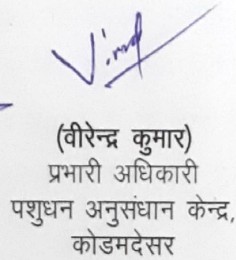 (वीरेन्द्र कुमार)
प्रभारी अधिकारी
पशुधन अनुसंधान केन्द्र,
कोडमदेसर